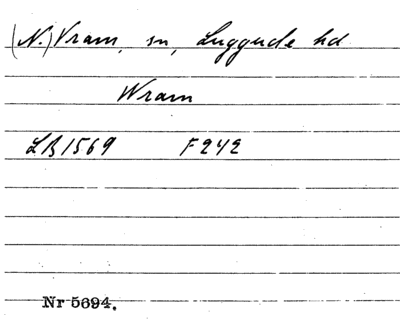 (N.) Vram, sn, Luggude hd
Wram
LB 1569 F 242
Nr 5694.